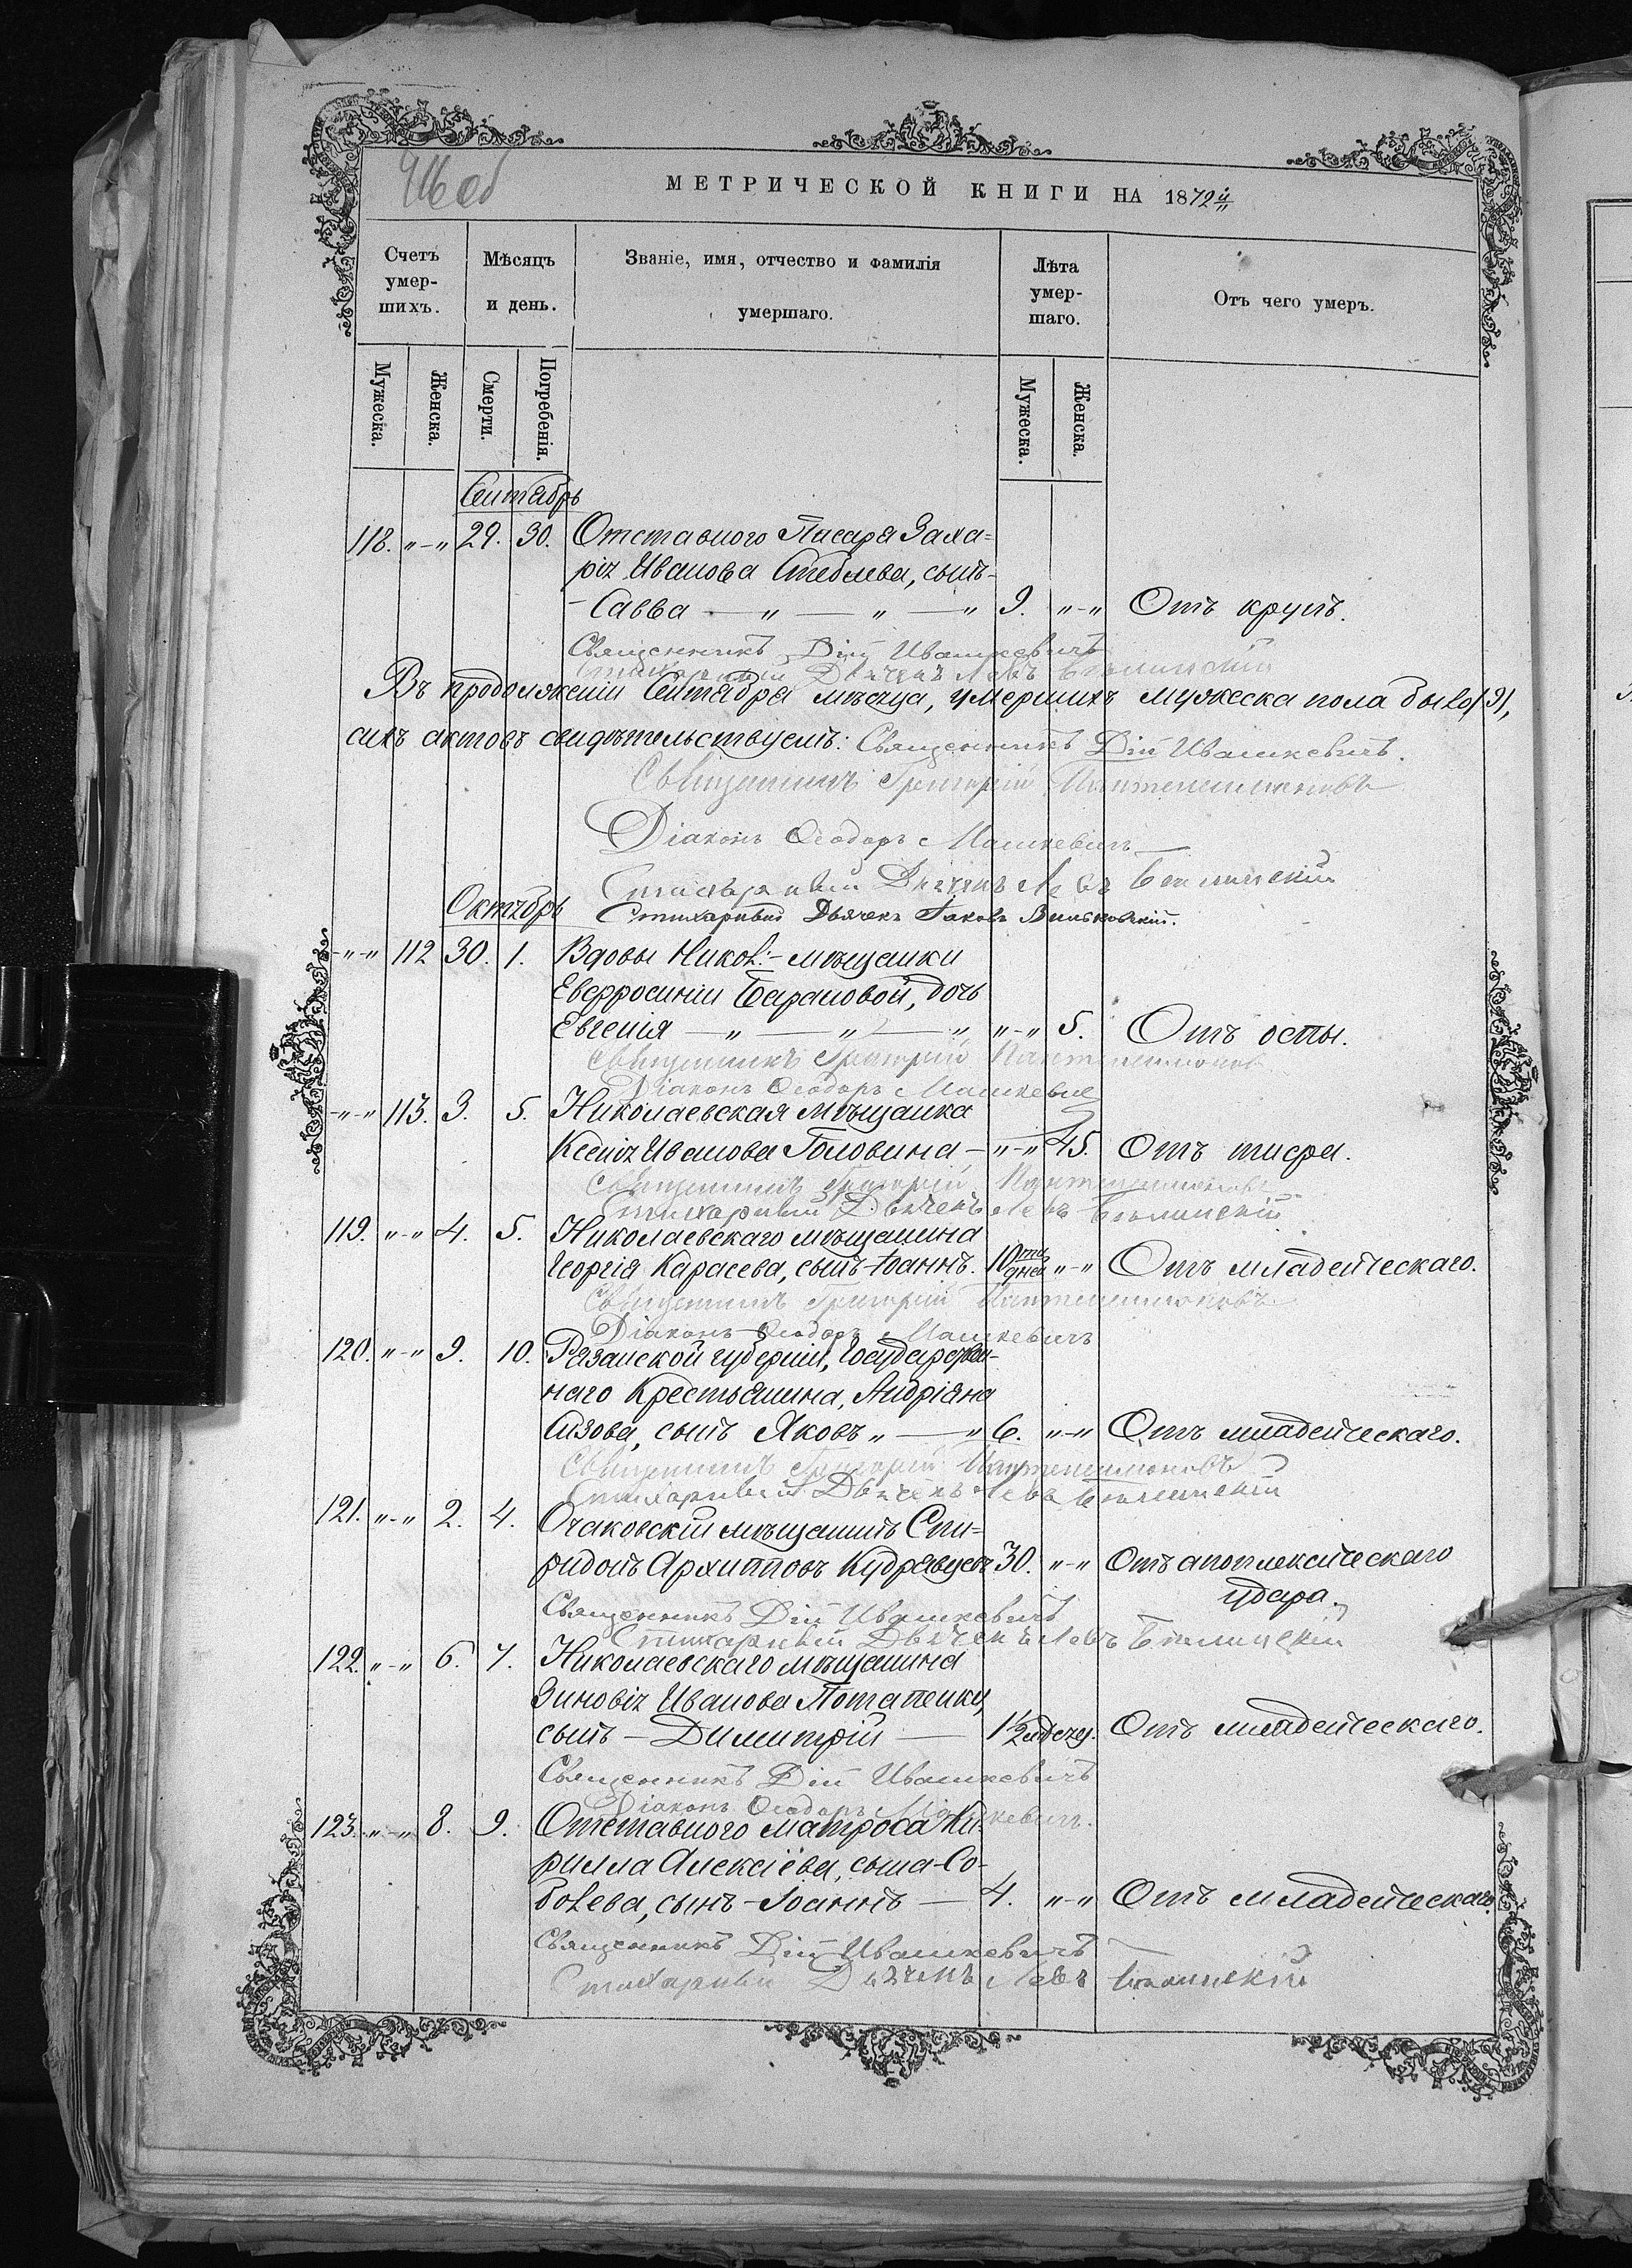 МЕТРИЧЕСКОЙ КНИГИ НА 1872й
Счетъ умер-шихъ.
Мѣсяцъ и день.
Званіе, имя, отчество и фамилія умершаго.
Лѣта умер-шаго.
Отъ чего умеръ.
Мужеска. Женска. Смерти. Погребенія. Мужеска. Женска.
Сентябрь
118. „-„ 29. 30. Отставного Писаря Заха=
рія Иванова Стеблева, сынъ-
-Савва — „ — „ — „ 9. „-„ Отъ крупъ.
Священникъ Дій Ивашкевичъ
Стихарный Дьячекъ Левъ
Въ продолженіи Сентября мѣсяца, умершихъ мужеска пола было
сихъ актовъ свидѣтельствуемъ: Священникъ Дій Ивашкевичъ.
Священникъ Григорій Пантелеимоновъ
Діаконъ Ѳеодоръ Машкевичъ
Стихарный Дьячекъ Левъ
Октябрь Стихарный Дьячекъ Іаковъ
-„-„ 112 30. 1. Вдовы Никол:-мѣщанки
Евфросиніи Барановой, дочь
Евгенія — „ — „ — „ „-„ 5. Отъ оспы.
Священникъ Григорій Пантелеимоновъ
Діаконъ Ѳеодоръ Машкевичъ
-„-„ 113. 3. 5. Николаевская мѣщанка
Ксенія Иванова Головина - „-„ 45. Отъ тифа.
Священникъ Григорій Пантелеимоновъ
Стихарный Дьячекъ Левъ
119. „-„ 4. 5. Николаевскаго мѣщанина
Георгія Карасева, сынъ Іоаннъ. 10ти дней „-„ Отъ младенческаго.
Священникъ Григорій Пантелеимоновъ
Діаконъ Ѳеодоръ Машкевичъ
120. „-„ 9. 10. Рязанской губерніи, Государствен-
наго Крестьянина, Андріяна
Сизова, сынъ Яковъ „ — „ 6. „-„ Отъ младенческаго.
Священникъ Григорій Пантелеимоновъ
Стихарный Дьячекъ Левъ
121. „-„ 2. 4. Очаковскій мѣщанинъ Спи=
ридонъ Архиповъ Кудрявцевъ 30. „-„ Отъ апоплексическаго
удара.
Священникъ Дій Ивашкевичъ
Стихарный Дьячекъ Левъ
122. „-„ 6. 7. Николаевскаго мѣщанина
Зиновія Иванова Потапенку,
сынъ - Димитрій — 1½ мѣсяц. Отъ младенческаго.
Священникъ Дій Ивашкевичъ
Діаконъ Ѳеодоръ Машкевичъ.
123. „-„ 8. 9. Отставного матроса Ки-
рилла Алексіева, сына-Со-
болева, сынъ - Іоаннъ — 4. „-„ Отъ младенческаго.
Священникъ Дій Ивашкевичъ
Стихарный Дьячекъ Левъ